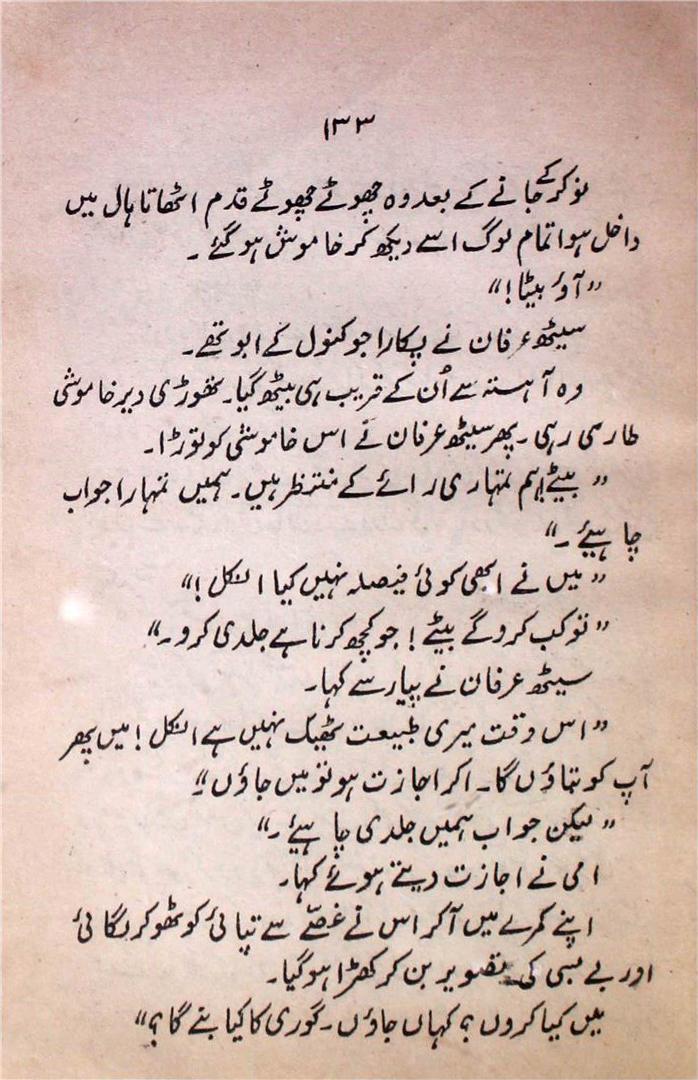 ۱۳۳
نوکر کے جانے کے بعد وہ چھوٹے چھوٹے قدم اٹھاتا ہال میں
داخل ہوا تمام لوگ اسے دیکھ کر خاموش ہو گئے ۔
”آؤ بیٹا!“
سیٹھ عرفان نے پکارا جو کنول کے ابو تھے۔
وہ آہستہ سے اُن کے قریب ہی بیٹھ گیا۔ تھوڑی دیر خاموشی
طارسی رہی۔ پھر سیٹھ عرفان نے اس خاموشی کو توڑا۔
”بیٹے! ہم تمہاری رائے کے منتظر ہیں۔ ہمیں تمہارا جواب
چاہیئے ۔“
”میں نے ابھی کوئی فیصلہ نہیں کیا انکل!“
”تو کب کرو گے بیٹے! جو کچھ کرنا ہے جلدی کرو۔“
سیٹھ عرفان نے پیار سے کہا۔
”اس وقت میری طبیعت ٹھیک نہیں ہے انکل! میں پھر
آپ کو بتاؤں گا۔ اگر اجازت ہو تو میں جاؤں“
”لیکن جواب ہمیں جلدی چاہیئے ۔“
امی نے اجازت دیتے ہوئے کہا۔
اپنے کمرے میں آ کر اس نے غصّے سے تپائی کو ٹھوکر لگائی
اور بے بسی کی تصویر بن کر کھڑا ہو گیا۔
میں کیا کروں؟ کہاں جاؤں۔ گوری کا کیا بنے گا؟“